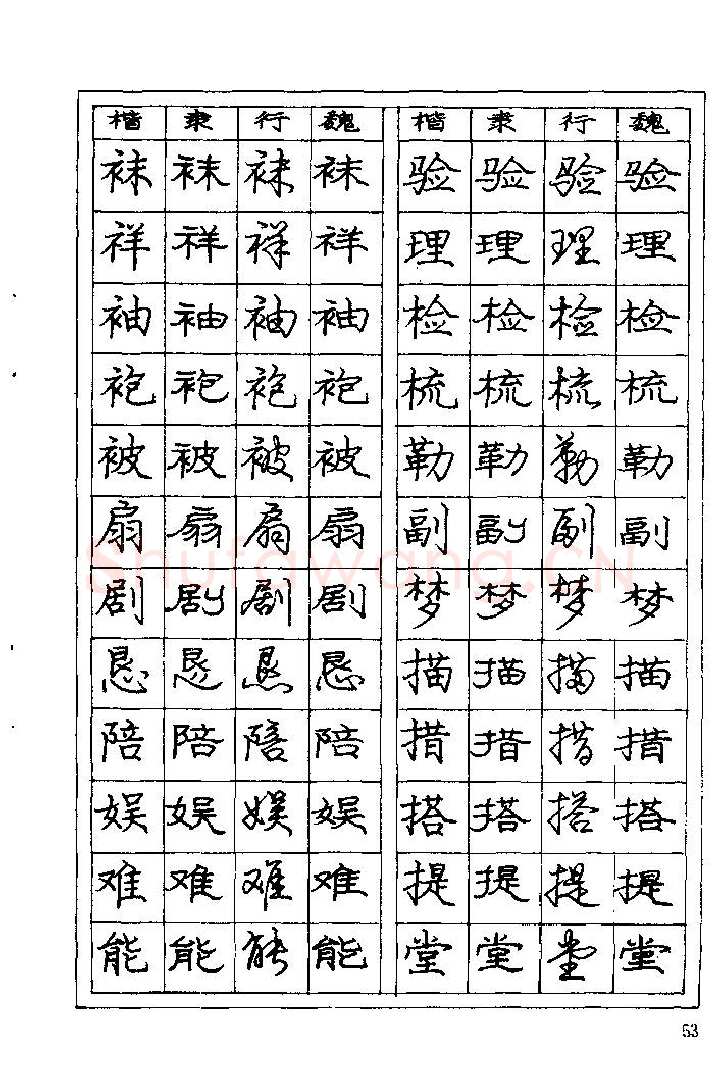 楷 隶 行 魏 楷 隶 行 魏
袜 袜 袜 袜 验 验 验 验
祥 祥 祥 祥 理 理 理 理
袖 袖 袖 袖 检 检 检 检
袍 袍 袍 袍 梳 梳 梳 梳
被 被 被 被 勒 勒 勒 勒
扇 扇 扇 扇 副 副 副 副
Shufawang.CN
剧 剧 剧 剧 梦 梦 梦 梦
恳 恳 恳 恳 描 描 描 描
陪 陪 陪 陪 措 措 措 措
娱 娱 娱 娱 搭 搭 搭 搭
难 难 难 难 提 提 提 提
能 能 能 能 堂 堂 堂 堂
53